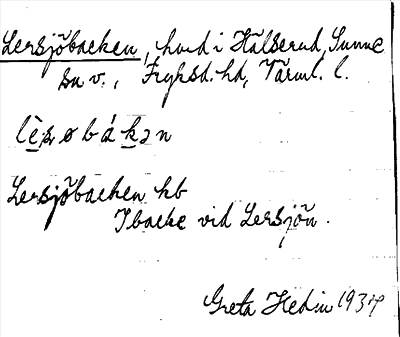 Lersjöbacken, hmd i Hälserud, Sunne
sn v., Fryksd. hd, Värml. l.
lèʂøbákən
Lersjöbacken hb
I backe vid Lersjön.
Greta Hedin 1937